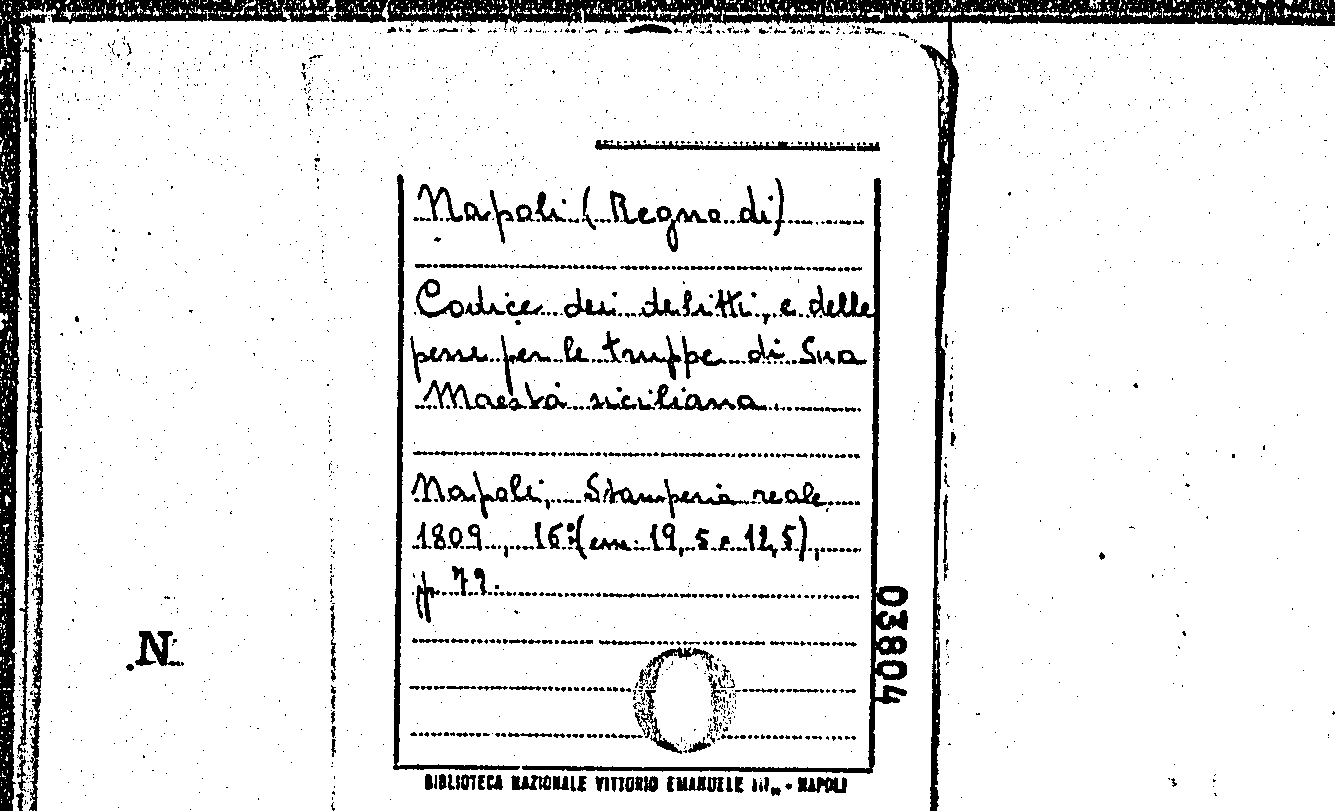 Napoli (Regno di)
Codice dei delitti, e delle
pene per le truppe di Sua
Maestà siciliana
Napoli, Stamperia reale
1809, 16º (cm. 19,5 x 12,5),
pp 79.
03804
N
BIBLIOTECA NAZIONALE VITTORIO EMANUELE III - NAPOLI